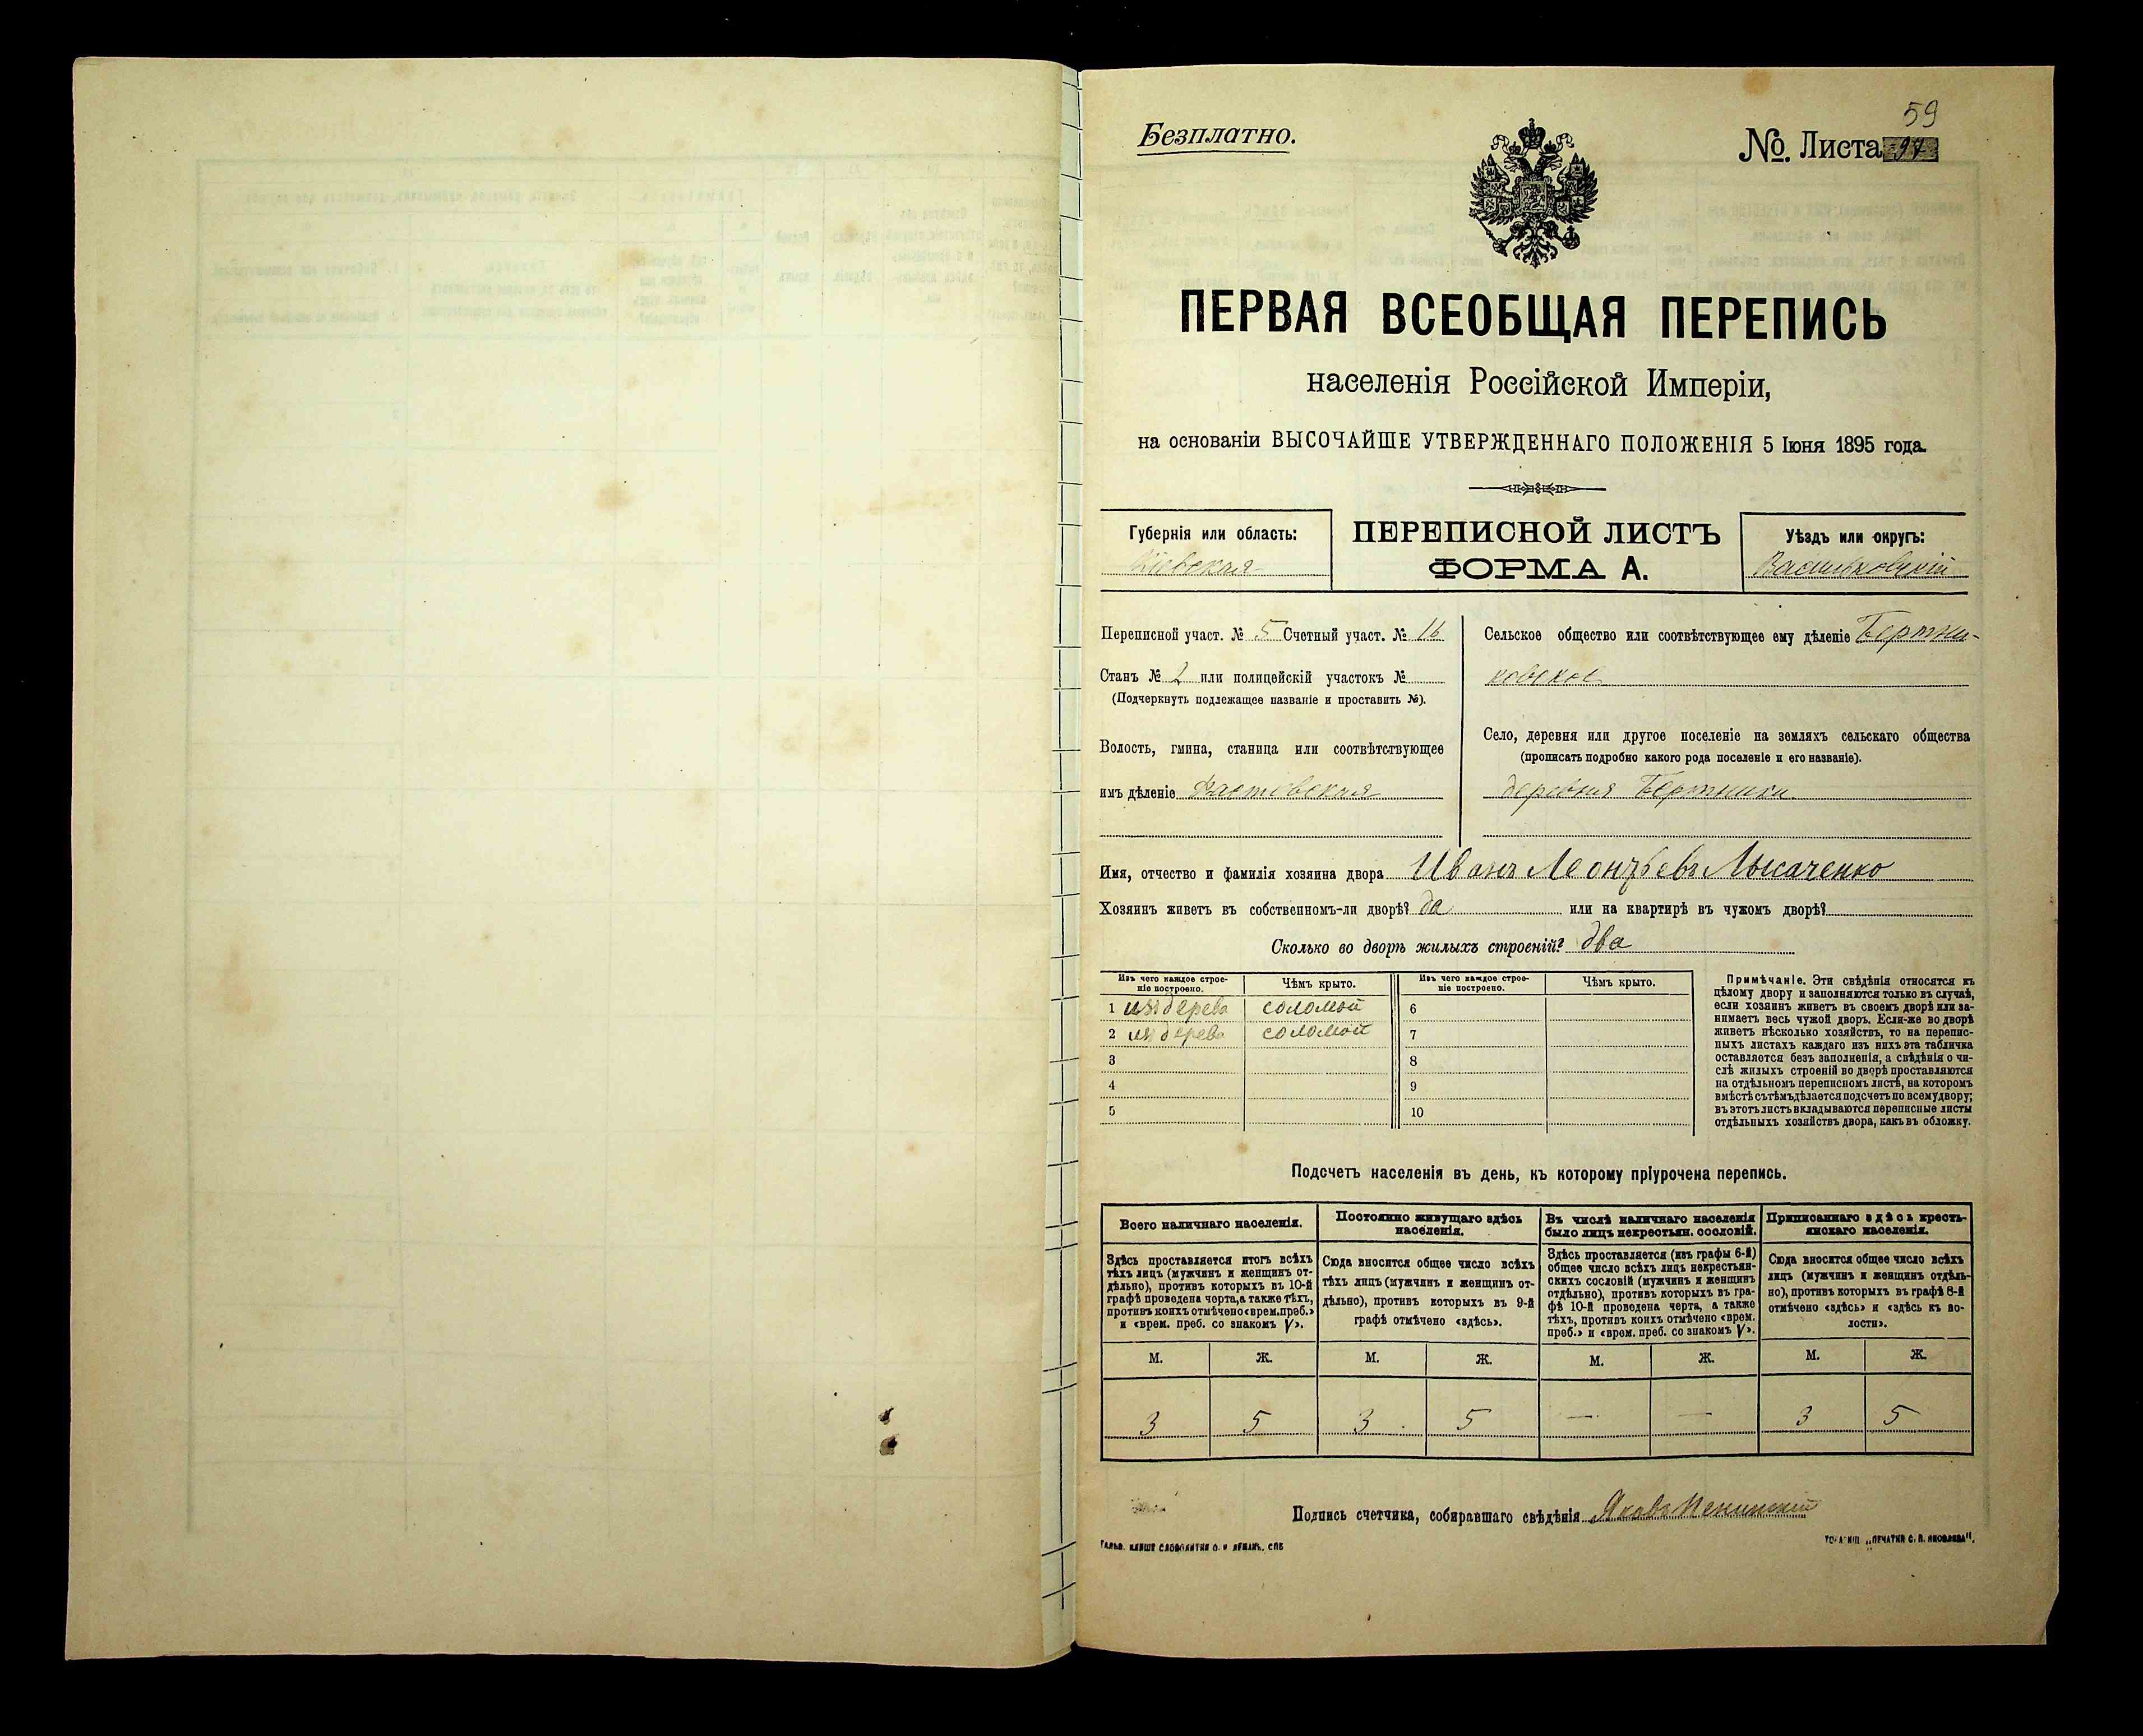 59
Безплатно.
№. Листа 97
ПЕРВАЯ ВСЕОБЩАЯ ПЕРЕПИСЬ
населенія Россійской Имперіи,
на основаніи ВЫСОЧАЙШЕ УТВЕРЖДЕННАГО ПОЛОЖЕНІЯ 5 Іюня 1895 года.
Губернія или область:
Кіевская
ПЕРЕПИСНОЙ ЛИСТЪ
ФОРМА А.
Уѣздъ или округъ:
Васильковскій
Переписной участ. № 5 Счетный участ. № 16
Станъ № 2 или полицейскій участокъ №
(Подчеркнуть подлежащее названіе и проставить №).
Волость, гмина, станица или соотвѣтствующее
имъ дѣленіе Фастовская
Сельское общество или соотвѣтствующее ему дѣленіе Бертни-
ковское
Село, деревня или другое поселеніе на земляхъ сельскаго общества
(прописать подробно какого рода поселеніе и его названіе).
деревня Бертники
Имя, отчество и фамилія хозяина двора Иванъ Леонтьевъ Лысаченко
Хозяинъ живетъ въ собственномъ-ли дворѣ? да или на квартирѣ въ чужомъ дворѣ?
Сколько во дворѣ жилыхъ строеній? два
Изъ чего каждое строе-
ніе построено.
Чѣмъ крыто.
Изъ чего каждое строе-
ніе построено.
Чѣмъ крыто.
1 изъ дерева соломой 6
2 изъ дерева соломой 7
3 8
4 9
5 10
Примѣчаніе. Эти свѣдѣнія относятся къ
цѣлому двору и заполняются только въ случаѣ,
если хозяинъ живетъ въ своемъ дворѣ или за-
нимаетъ весь чужой дворъ. Если-же во дворѣ
живетъ нѣсколько хозяйствъ, то на перепис-
ныхъ листахъ каждаго изъ нихъ эта табличка
оставляется безъ заполненія, а свѣдѣнія о чи-
слѣ жилыхъ строеній во дворѣ проставляются
на отдѣльномъ переписномъ листѣ, на которомъ
вмѣстѣ съ тѣмъ дѣлается подсчетъ по всему двору;
въ этотъ листъ вкладываются переписные листы
отдѣльныхъ хозяйствъ двора, какъ въ обложку.
Подсчетъ населенія въ день, къ которому пріурочена перепись.
Всего наличнаго населенія.
Постоянно живущаго здѣсь
населенія.
Въ числѣ наличнаго населенія
было лицъ некрестьян. сословій.
Приписаннаго здѣсь кресть-
янскаго населенія.
Здѣсь проставляется итогъ всѣхъ
тѣхъ лицъ (мужчинъ и женщинъ от-
дѣльно), противъ которыхъ въ 10-й
графѣ проведена черта, а также тѣхъ,
противъ коихъ отмѣчено «врем. преб.»
и «врем. преб. со знакомъ V».
Сюда вносится общее число всѣхъ
тѣхъ лицъ (мужчинъ и женщинъ от-
дѣльно), противъ которыхъ въ 9-й
графѣ отмѣчено «здѣсь».
Здѣсь проставляется (изъ графы 6-й)
общее число всѣхъ лицъ некрестьян-
скихъ сословій (мужчинъ и женщинъ
отдѣльно), противъ которыхъ въ гра-
фѣ 10-й проведена черта, а также
тѣхъ, противъ коихъ отмѣчено «врем.
преб.» и «врем. преб. со знакомъ V».
Сюда вносится общее число всѣхъ
лицъ (мужчинъ и женщинъ отдѣль-
но), противъ которыхъ въ графѣ 8-й
отмѣчено «здѣсь» и «здѣсь къ во-
лости».
М. Ж. М. Ж. М. Ж. М. Ж.
3 5 3 5 — — 3 5
Подпись счетчика, собиравшаго свѣдѣнія Яковъ